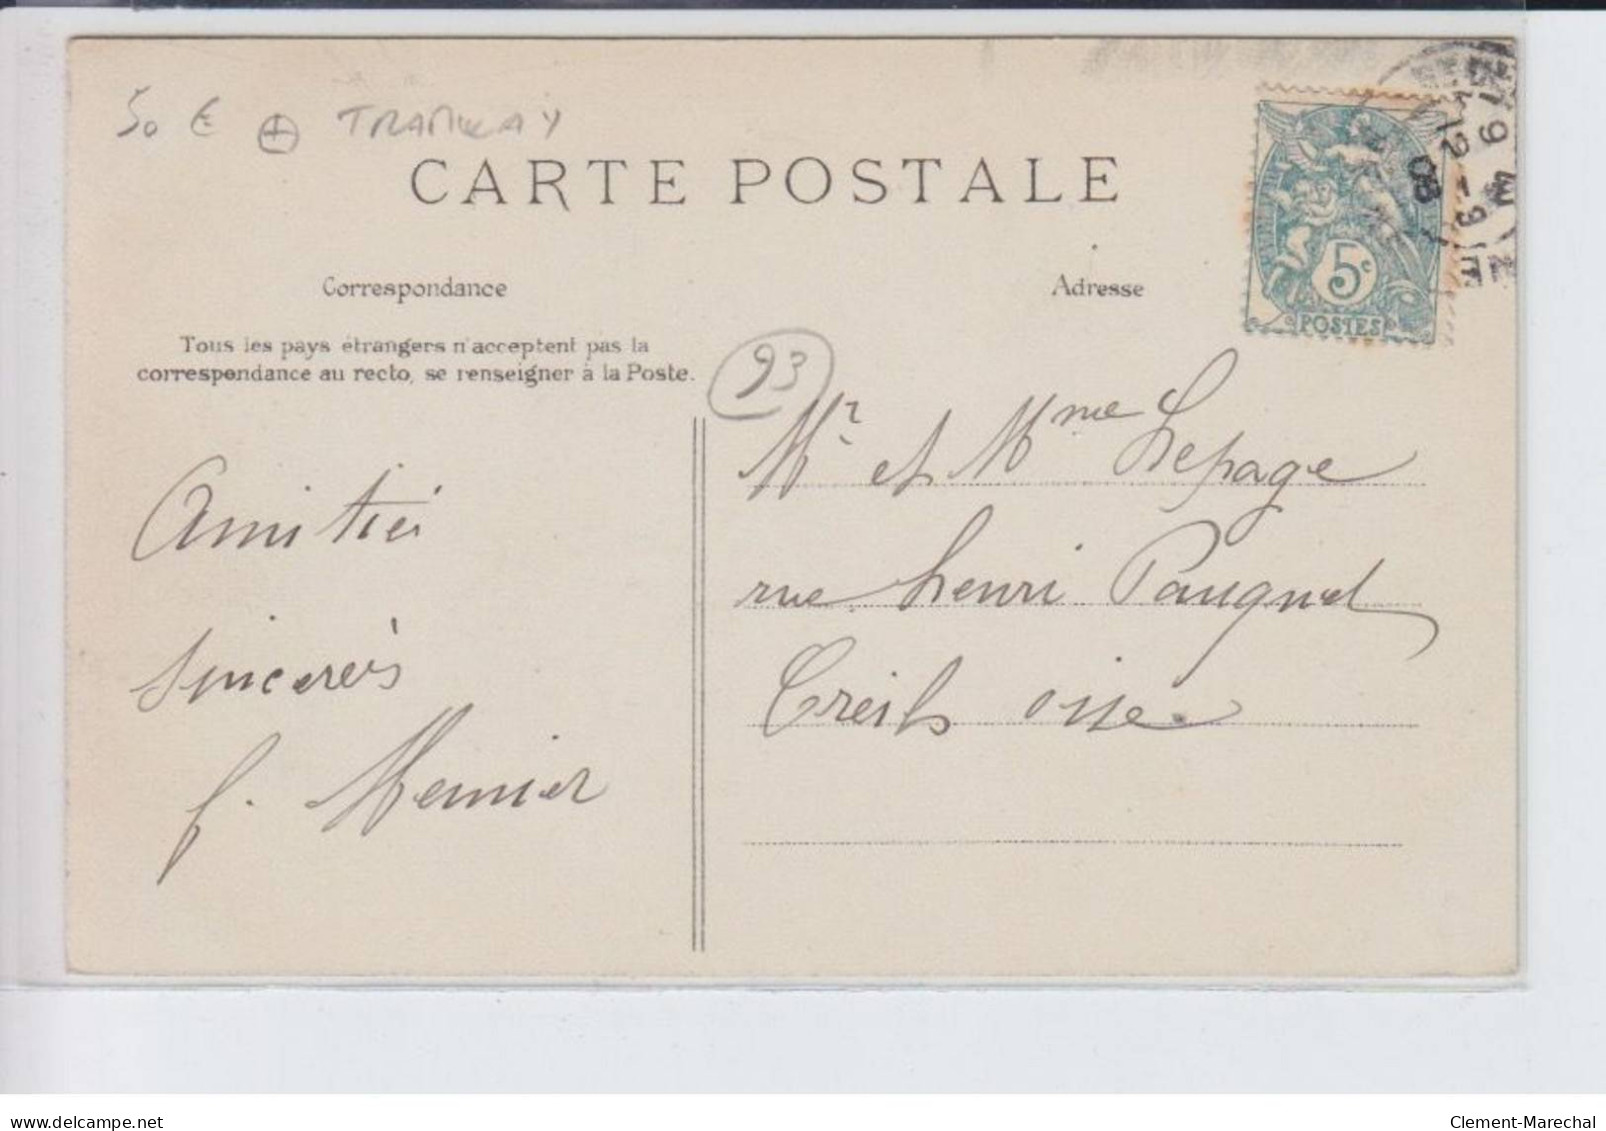 50 € + TRAMWAY
CARTE POSTALE
Correspondance
Adresse
Tous les pays étrangers n'acceptent pas la
correspondance au recto, se renseigner à la Poste.
93
5c
POSTES
08
Amitiés
sincères
f. Memier
Mr et Mme Lepage
rue henri Paugnet
Creils oise
www.delcampe.net
Clement-Marechal